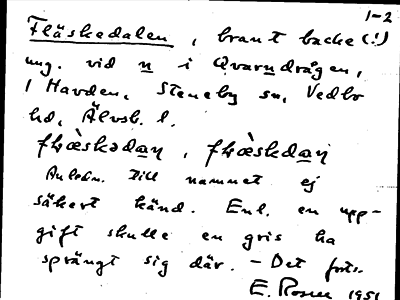 1-2
Fläskedalen, brant backe (!)
ung. vid n i Qvarndrågen,
i Havden, Steneby sn, Vedbo
hd, Älvsb. l.
Anledn. till namnet ej
säkert känd. Enl. en upp-
gift skulle en gris ha
sprängt sig där. - Det forts.
E. Rosen 1951